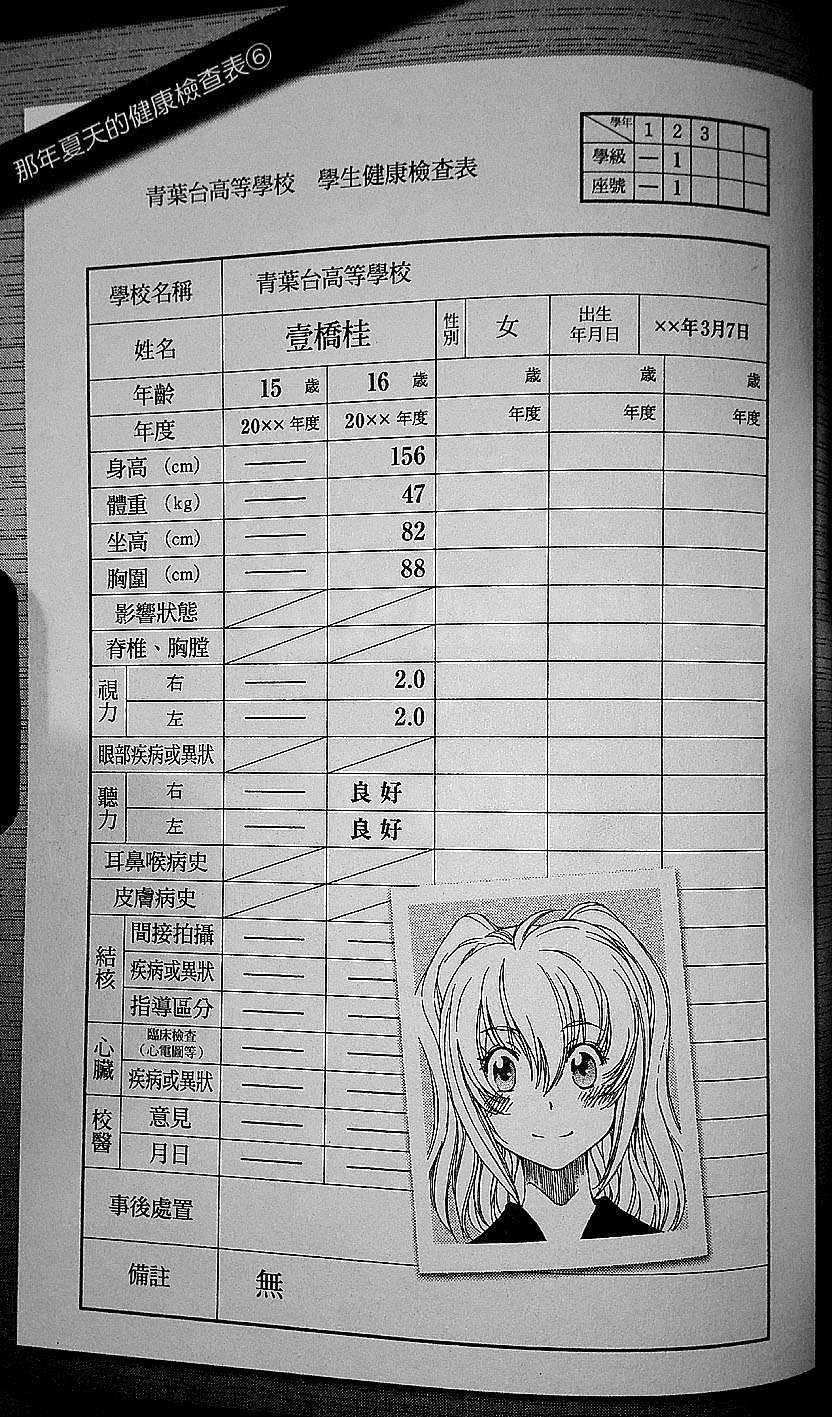 那年夏天的健康檢查表⑥
青葉台高等學校 學生健康檢查表
學年 1 2 3
學級 — 1
座號 — 1
學校名稱 青葉台高等學校
姓名 壹橋桂 性別 女 出生年月日 ××年3月7日
年齡 15 歲 16 歲 歲 歲 歲
年度 20×× 年度 20×× 年度 年度 年度 年度
身高 (cm) — 156
體重 (kg) — 47
坐高 (cm) — 82
胸圍 (cm) — 88
影響狀態
脊椎、胸膛
視力 右 — 2.0
左 — 2.0
眼部疾病或異狀
聽力 右 — 良好
左 — 良好
耳鼻喉病史
皮膚病史
結核 間接拍攝 — —
疾病或異狀 — —
指導區分 — —
心臟 臨床檢查(心電圖等) — —
疾病或異狀 — —
校醫 意見 — —
月日 — —
事後處置
備註 無